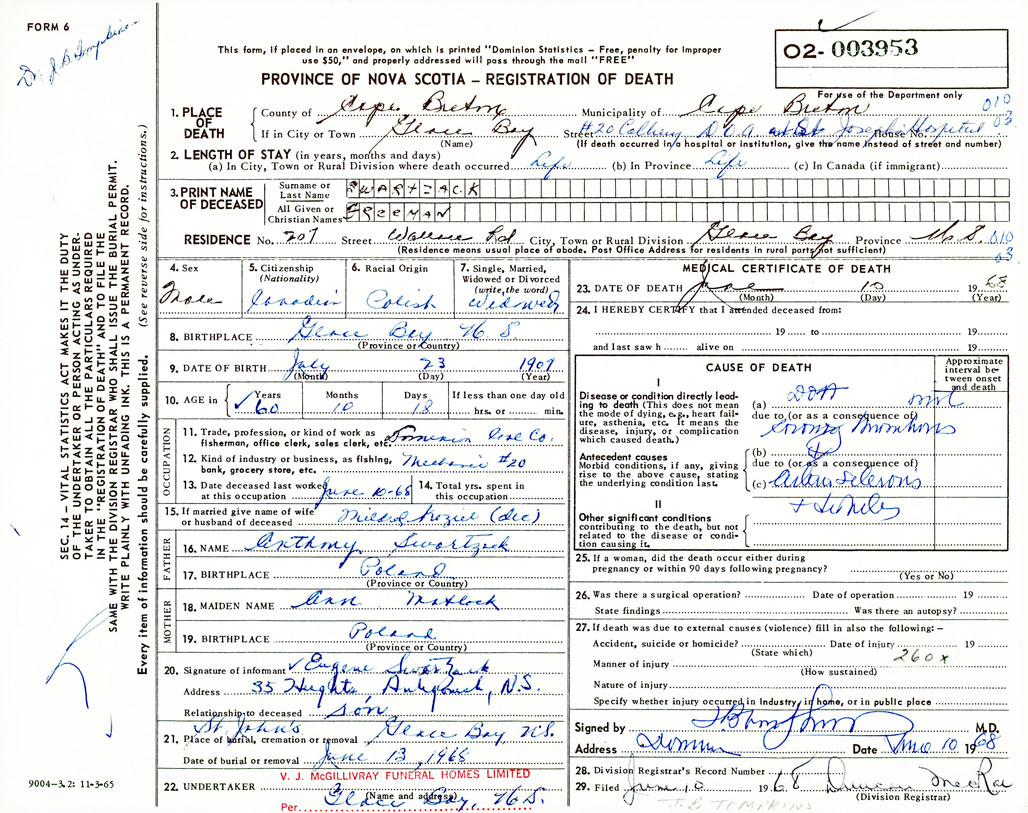 FORM 6
Dr. J. B. Tompkins
O2- 003953
For use of the Department only
This form, if placed in an envelope, on which is printed "Dominion Statistics – Free, penalty for improper
use $50," and properly addressed will pass through the mail "FREE"
PROVINCE OF NOVA SCOTIA – REGISTRATION OF DEATH
1. PLACE OF DEATH County of Cape Breton Municipality of Cape Breton 010
If in City or Town Glace Bay Street #20 Colliery D.O.A. at St. Joseph Hospital House No. 03
(Name) (If death occurred in a hospital or institution, give the name instead of street and number)
2. LENGTH OF STAY (in years, months and days)
(a) In City, Town or Rural Division where death occurred Life (b) In Province Life (c) In Canada (if immigrant)
3. PRINT NAME OF DECEASED Surname or Last Name SWARTZACK
All Given or Christian Names FREEMAN
RESIDENCE No. 207 Street Wallace Rd City, Town or Rural Division Glace Bay Province N.S. 010
(Residence means usual place of abode. Post Office Address for residents in rural parts not sufficient) 03
4. Sex Male
5. Citizenship (Nationality) Canadian
6. Racial Origin Polish
7. Single, Married, Widowed or Divorced (write the word) Widowed
8. BIRTHPLACE Glace Bay N.S.
(Province or Country)
9. DATE OF BIRTH July 23 1907
(Month) (Day) (Year)
10. AGE in Years 60 Months 10 Days 18 If less than one day old hrs. or min.
OCCUPATION
11. Trade, profession, or kind of work as
fisherman, office clerk, sales clerk, etc. Dominion Coal Co.
12. Kind of industry or business, as fishing,
bank, grocery store, etc. Mechanic #20
13. Date deceased last worked
at this occupation June 10-68
14. Total yrs. spent in
this occupation
15. If married give name of wife
or husband of deceased Mildred (dec)
FATHER
16. NAME Anthony Swartzack
17. BIRTHPLACE Poland
(Province or Country)
MOTHER
18. MAIDEN NAME Ann Matlock
19. BIRTHPLACE Poland
(Province or Country)
20. Signature of informant Eugene Swartzack
Address 35 Heights, Antigonish, N.S.
Relationship to deceased son
21. Place of burial, cremation or removal St. John's Glace Bay N.S.
Date of burial or removal June 13, 1968
22. UNDERTAKER V. J. McGILLIVRAY FUNERAL HOMES LIMITED
(Name and address)
Per Glace Bay, N.S.
MEDICAL CERTIFICATE OF DEATH
23. DATE OF DEATH June 10 1968
(Month) (Day) (Year)
24. I HEREBY CERTIFY that I attended deceased from:
19 to 19
and last saw h alive on 19
CAUSE OF DEATH
Approximate interval between onset and death
I
Disease or condition directly leading
to death (This does not mean
the mode of dying, e.g., heart failure,
asthenia, etc. It means the
disease, injury, or complication
which caused death.)
(a) DOA
due to (or as a consequence of)
Coronary Thrombosis
Antecedent causes
Morbid conditions, if any, giving
rise to the above cause, stating
the underlying condition last.
(b)
due to (or as a consequence of)
(c) Arteriosclerosis
+ Diabetes
II
Other significant conditions
contributing to the death, but not
related to the disease or condition
causing it.
25. If a woman, did the death occur either during
pregnancy or within 90 days following pregnancy?
(Yes or No)
26. Was there a surgical operation? Date of operation 19
State findings Was there an autopsy?
27. If death was due to external causes (violence) fill in also the following: –
Accident, suicide or homicide? Date of injury 19
(State which) 260x
Manner of injury
(How sustained)
Nature of injury
Specify whether injury occurred in Industry, in home, or in public place
Signed by J B Tompkins M.D.
Address Dominion Date June 10 1968
28. Division Registrar's Record Number
29. Filed June 10 1968 Duncan MacRae
(Division Registrar)
J.B. TOMPKINS
SEC. 14 – VITAL STATISTICS ACT MAKES IT THE DUTY
OF THE UNDERTAKER OR PERSON ACTING AS UNDERTAKER
TO OBTAIN ALL THE PARTICULARS REQUIRED
IN THE "REGISTRATION OF DEATH" AND TO FILE THE
SAME WITH THE DIVISION REGISTRAR WHO SHALL ISSUE THE BURIAL PERMIT.
WRITE PLAINLY WITH UNFADING INK. THIS IS A PERMANENT RECORD.
Every item of information should be carefully supplied. (See reverse side for instructions.)
9004–3.2: 11-3-65